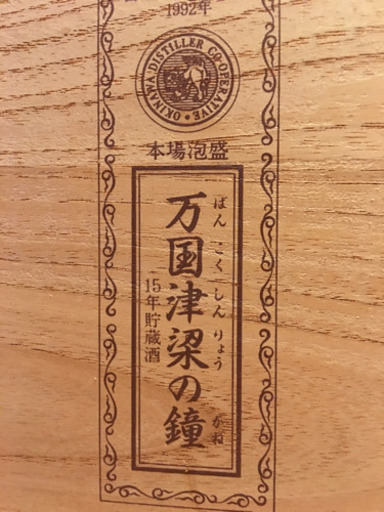 1992年
OKINAWA DISTILLER CO-OPERATIVE
本場泡盛
万国津梁の鐘
ばんこくしんりょう かね
15年貯蔵酒